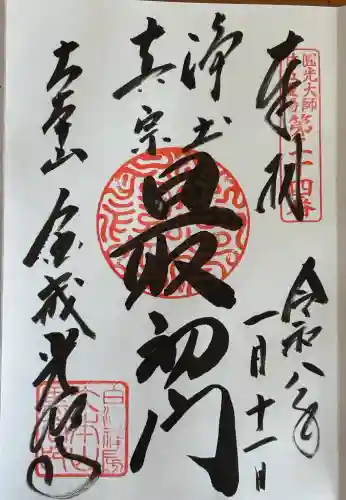 奉拝
圓光大師
第二十四番
令和八年
一月十一日
浄土
真宗
最初門
大本山
金戒光明寺